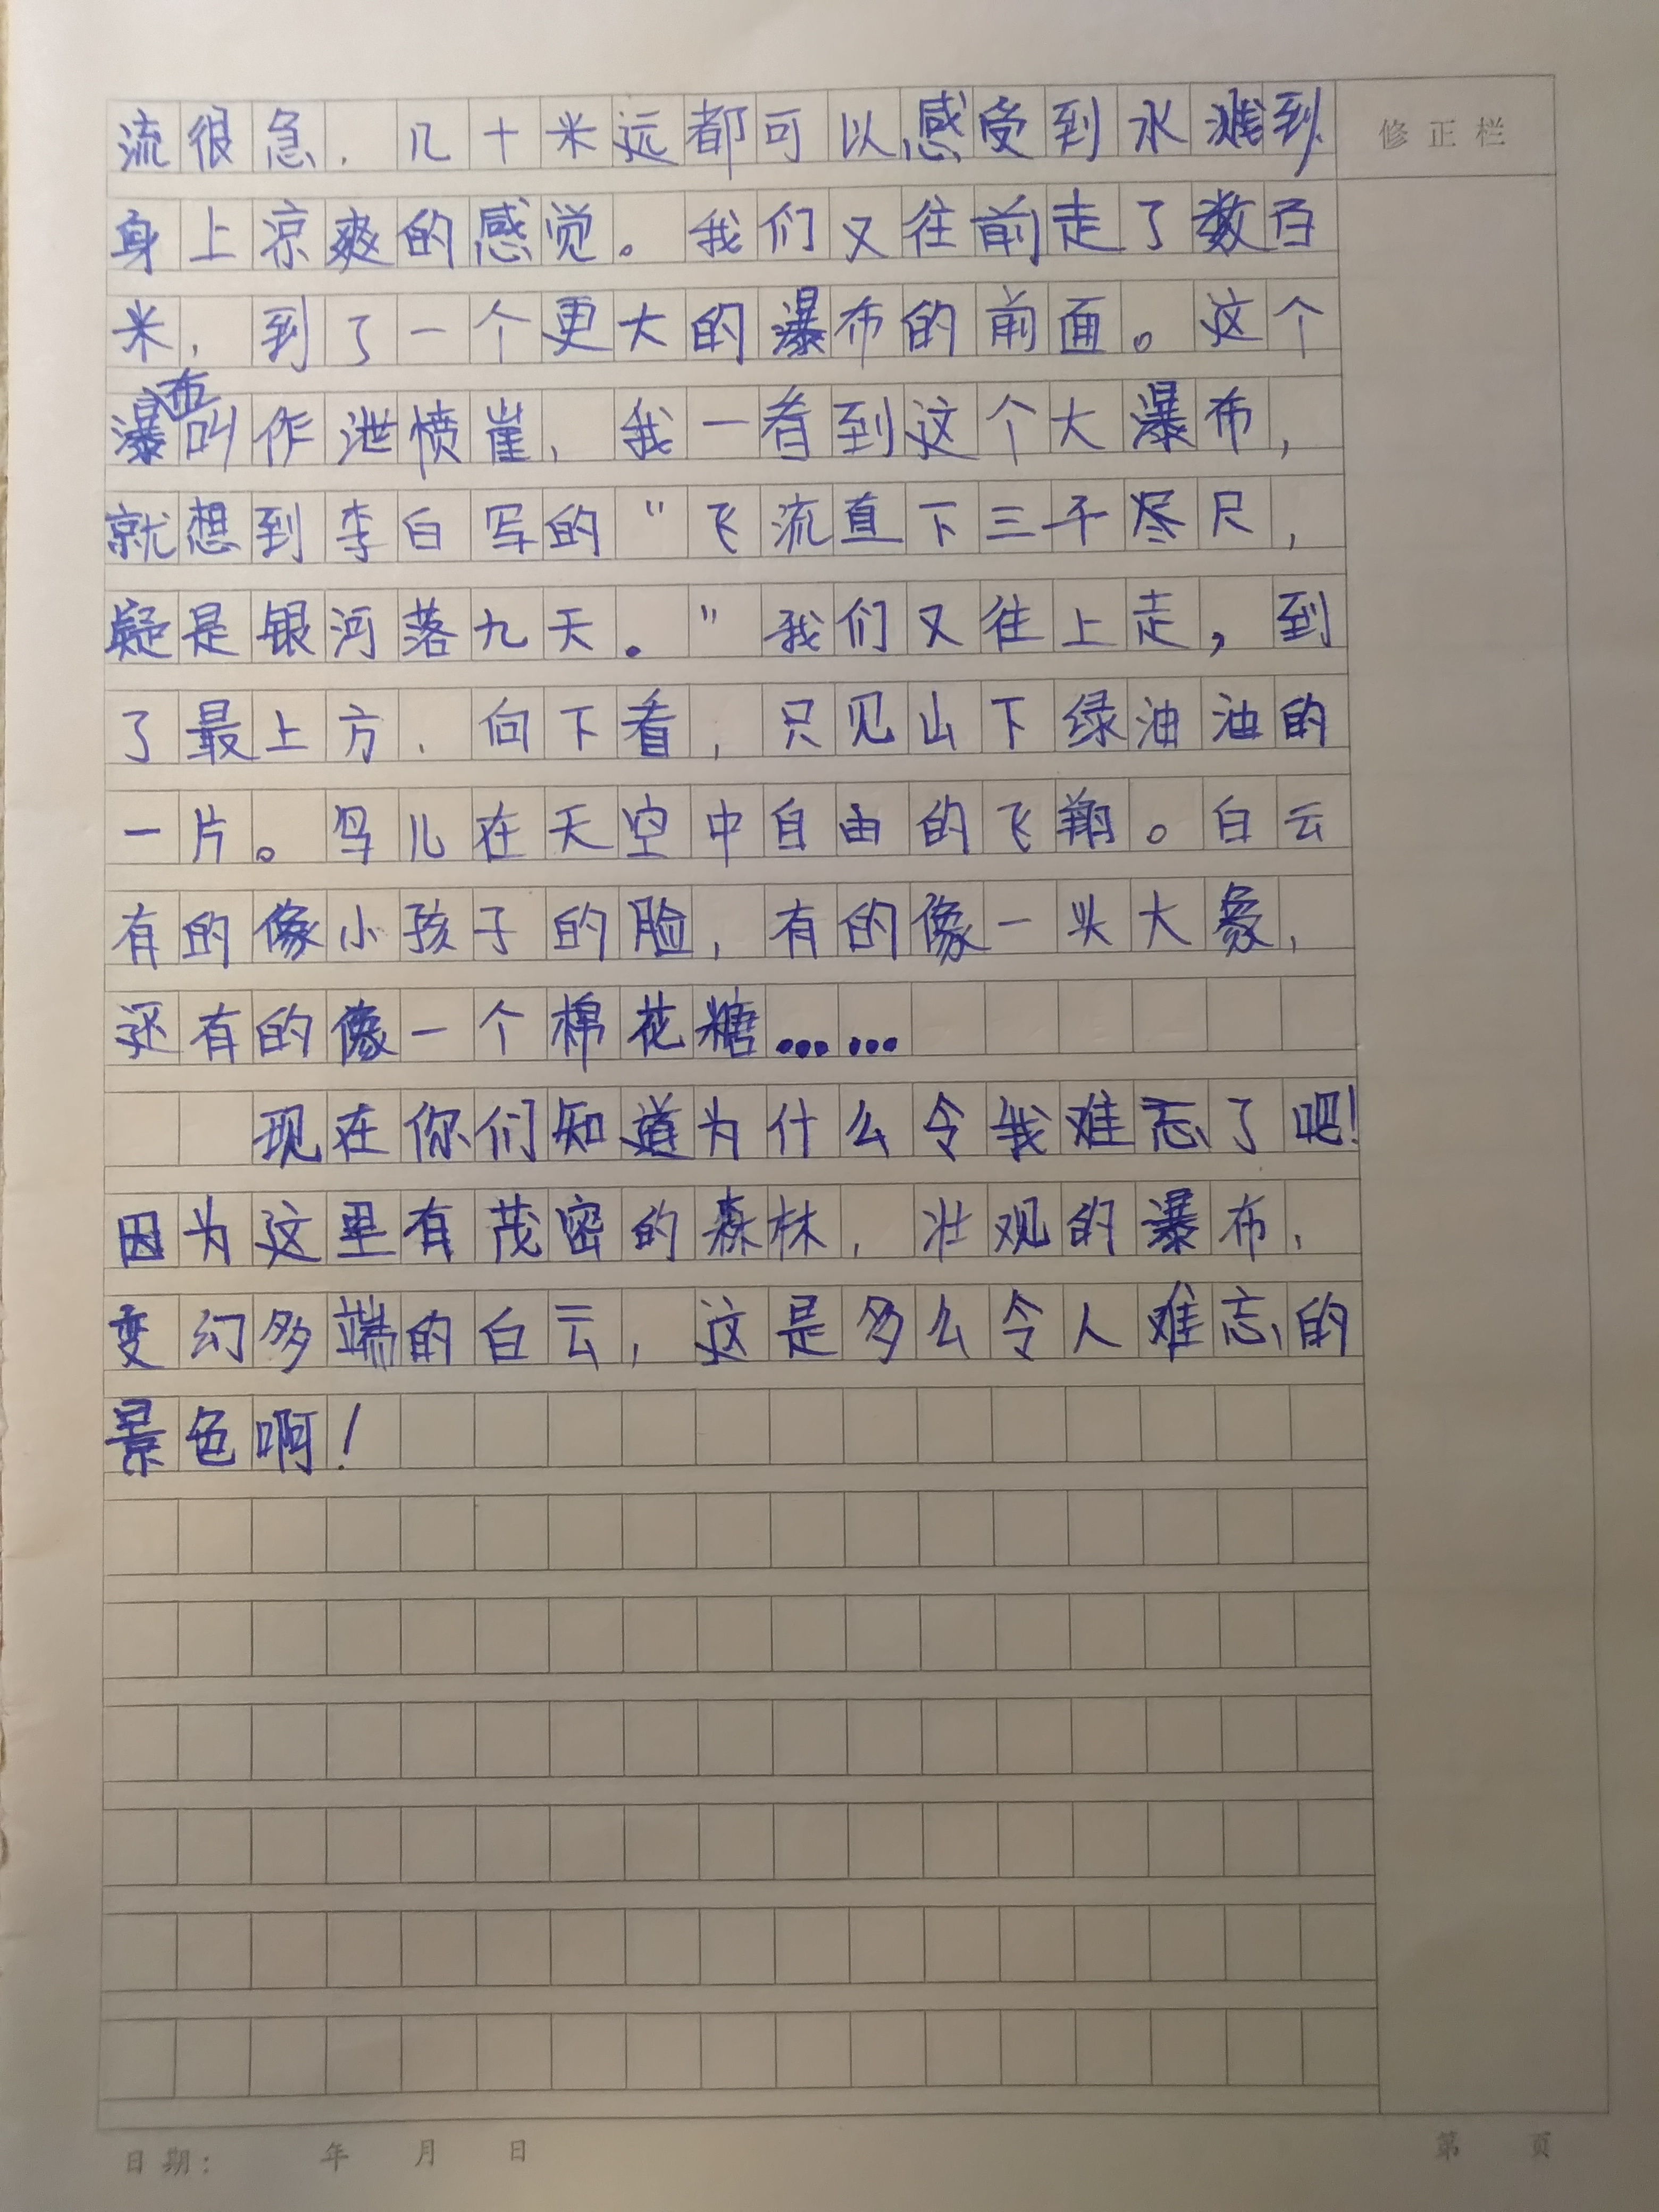 流很急，几十米远都可以感受到水溅到
修正栏
身上凉爽的感觉。我们又往前走了数百
米，到了一个更大的瀑布的前面。这个
瀑布叫作泄愤崖，我一看到这个大瀑布，
就想到李白写的“飞流直下三千尽尺，
疑是银河落九天。”我们又往上走，到
了最上方，向下看，只见山下绿油油的
一片。鸟儿在天空中自由的飞翔。白云
有的像小孩子的脸，有的像一头大象，
还有的像一个棉花糖……
现在你们知道为什么令我难忘了吧！
因为这里有茂密的森林，壮观的瀑布，
变幻多端的白云，这是多么令人难忘的
景色啊！
日期： 年 月 日
第 页